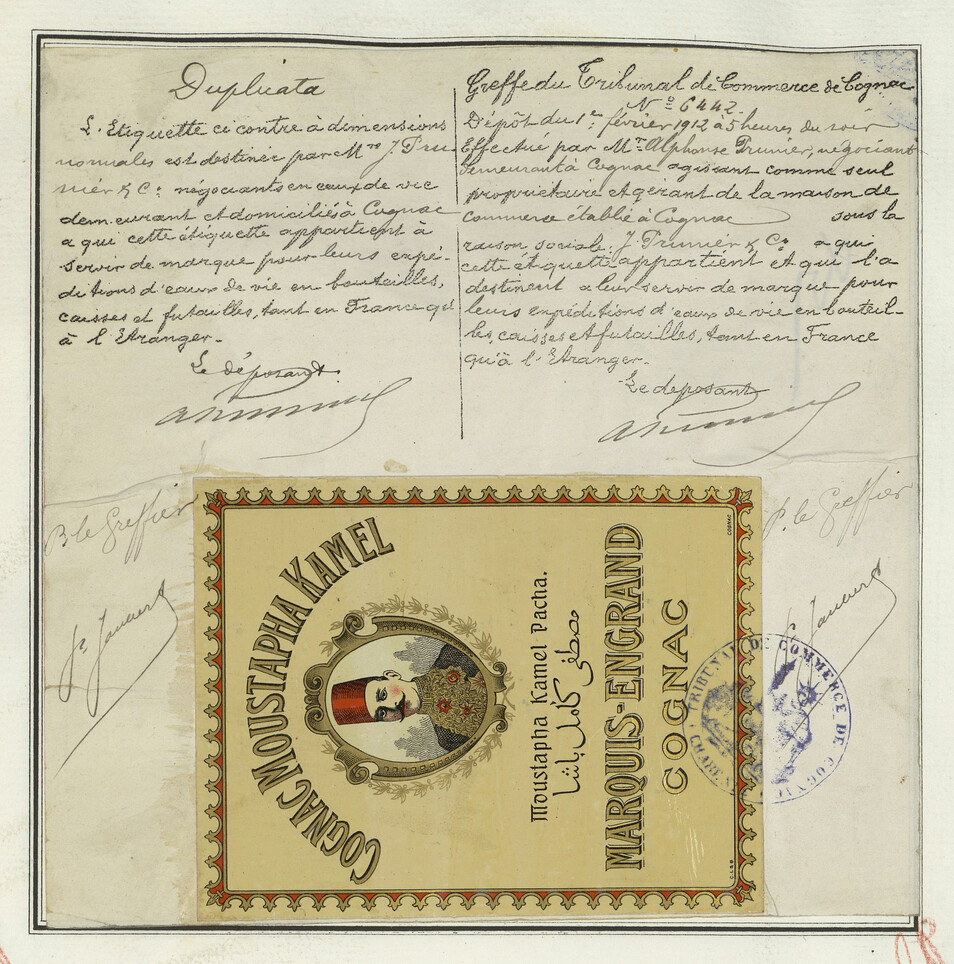 Duplicata
L'Etiquette ci contre à dimensions
normales est destinée par Mrs J. Pru-
nier & Co. négociants en eaux de vie
demeurant et domiciliés à Cognac
a qui cette étiquette appartient à
servir de marque pour leurs expé-
ditions d'eaux de vie en bouteilles,
caisses et futailles, tant en France qu'
à l'Etranger.
Le déposant.
Greffe du Tribunal de Commerce de Cognac
No 6442.
Dépôt du 1er février 1912 à 5 heures du soir
Effectué par Mr. Alphonse Prunier, négociant
demeurant à Cognac agissant comme seul
propriétaire et gérant de la maison de
commerce établie à Cognac sous la
raison sociale: J. Prunier & Co. a qui
cette étiquette appartient et qui l'a
destinent a leur servir de marque pour
leurs expéditions d'eaux de vie en bouteil-
les, caisses et futailles, tant en France
qu'à l'Etranger.
Le deposant
P. le Greffier
P. le Greffier
COGNAC MOUSTAPHA KAMEL
Moustapha Kamel Pacha.
مصطفى كامل باشا
MARQUIS-ENGRAND
COGNAC
COGNAC
C.L.& B
TRIBUNAL DE COMMERCE DE COGNAC